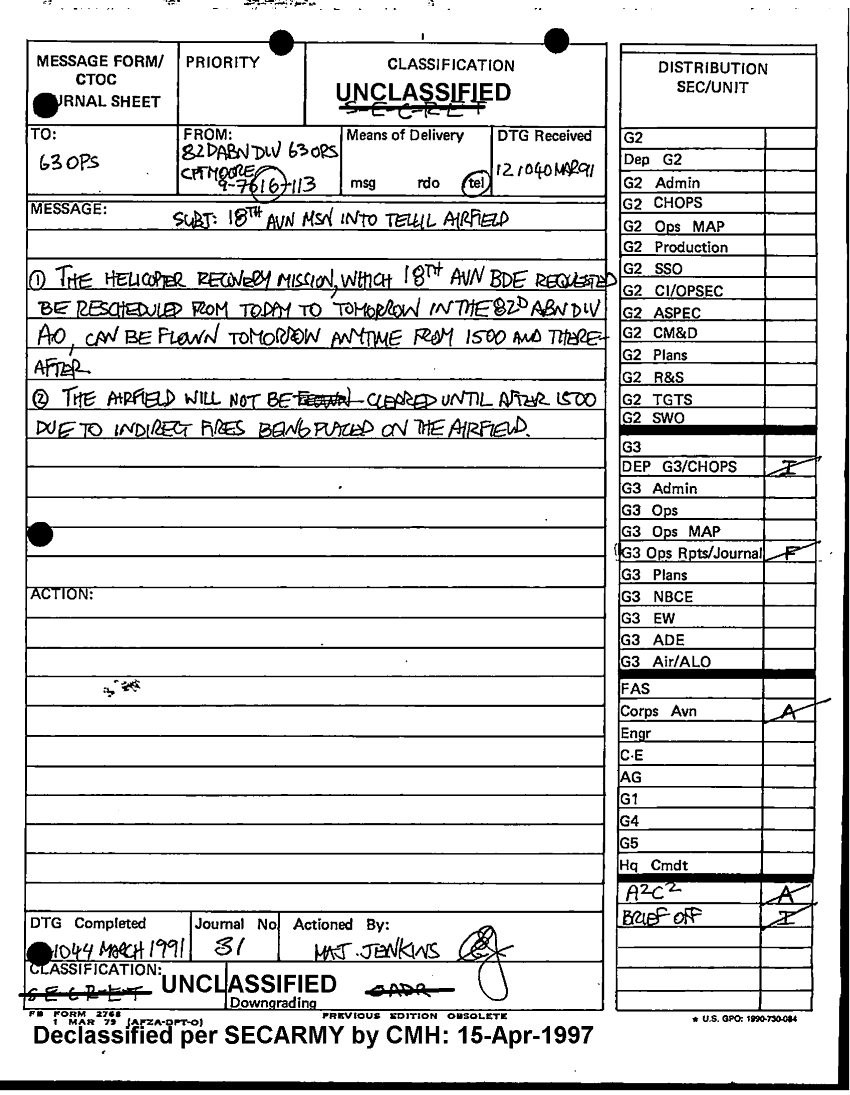 MESSAGE FORM/
CTOC
URNAL SHEET
PRIORITY
CLASSIFICATION
UNCLASSIFIED
S-E-C-R-E-T
DISTRIBUTION
SEC/UNIT
TO:
G3 OPS
FROM:
82D ABN DIV G3 OPS
CPT MOORE
Means of Delivery
msg rdo tel
DTG Received
121040 MAR 91
MESSAGE:
SUBJ: 18TH AVN MSN INTO TELLIL AIRFIELD
① THE HELICOPTER RECOVERY MISSION, WHICH 18TH AVN BDE REQUESTED
BE RESCHEDULED FROM TODAY TO TOMORROW IN THE 82D ABN DIV
AO, CAN BE FLOWN TOMORROW ANYTIME FROM 1500 AND THERE-
AFTER.
② THE AIRFIELD WILL NOT BE CLEARED UNTIL AFTER 1500
DUE TO INDIRECT FIRES BEING PLACED ON THE AIRFIELD.
ACTION:
DTG Completed
1044 MARCH 1991
Journal No.
31
Actioned By:
MAJ. JENKINS
CLASSIFICATION:
S-E-C-R-E-T
UNCLASSIFIED
Downgrading
OADR
FB FORM 2768
1 MAR 79 (AFZA-DPT-O)
PREVIOUS EDITION OBSOLETE
Declassified per SECARMY by CMH: 15-Apr-1997
G2
Dep G2
G2 Admin
G2 CHOPS
G2 Ops MAP
G2 Production
G2 SSO
G2 CI/OPSEC
G2 ASPEC
G2 CM&D
G2 Plans
G2 R&S
G2 TGTS
G2 SWO
G3
DEP G3/CHOPS I
G3 Admin
G3 Ops
G3 Ops MAP
G3 Ops Rpts/Journal F
G3 Plans
G3 NBCE
G3 EW
G3 ADE
G3 Air/ALO
FAS
Corps Avn A
Engr
C-E
AG
G1
G4
G5
Hq Cmdt
A2C2 A
BRIEF OFF I
★ U.S. GPO: 1990-730-084